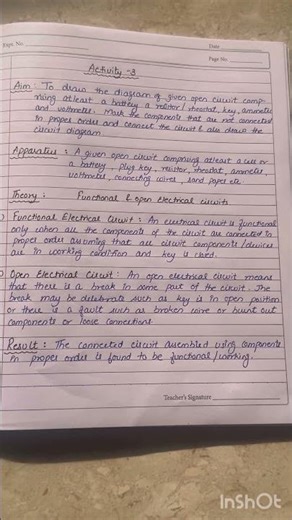 Expt. No.
Date
Page No.
Activity -3
Aim : To draw the diagram of given open circuit comp-
rising atleast a battery a resistor / rheostat, key, ammeter
and voltmeter. Mark the components that are not connected
in proper order and connect the circuit & also draw the
circuit diagram
Apparatus : A given open circuit comprising atleast a cell or
a battery, plug key, resistor, rheostat, ammeter,
voltmeter, connecting wires, sand paper etc.
Theory : Functional & Open Electrical circuits
Functional Electrical Circuit : An electrical circuit is functional
only when all the components of the circuit are connected in
proper order assuming that all circuit components / devices
are in working condition and key is closed.
Open Electrical Circuit : An open electrical circuit means
that there is a break in some part of the circuit. The
break may be deliberate such as key is in open position
or there is a fault such as broken wire or burnt out
components or loose connections.
Result : The connected circuit assembled using components
in proper order is found to be functional / working.
Teacher's Signature
InShOt